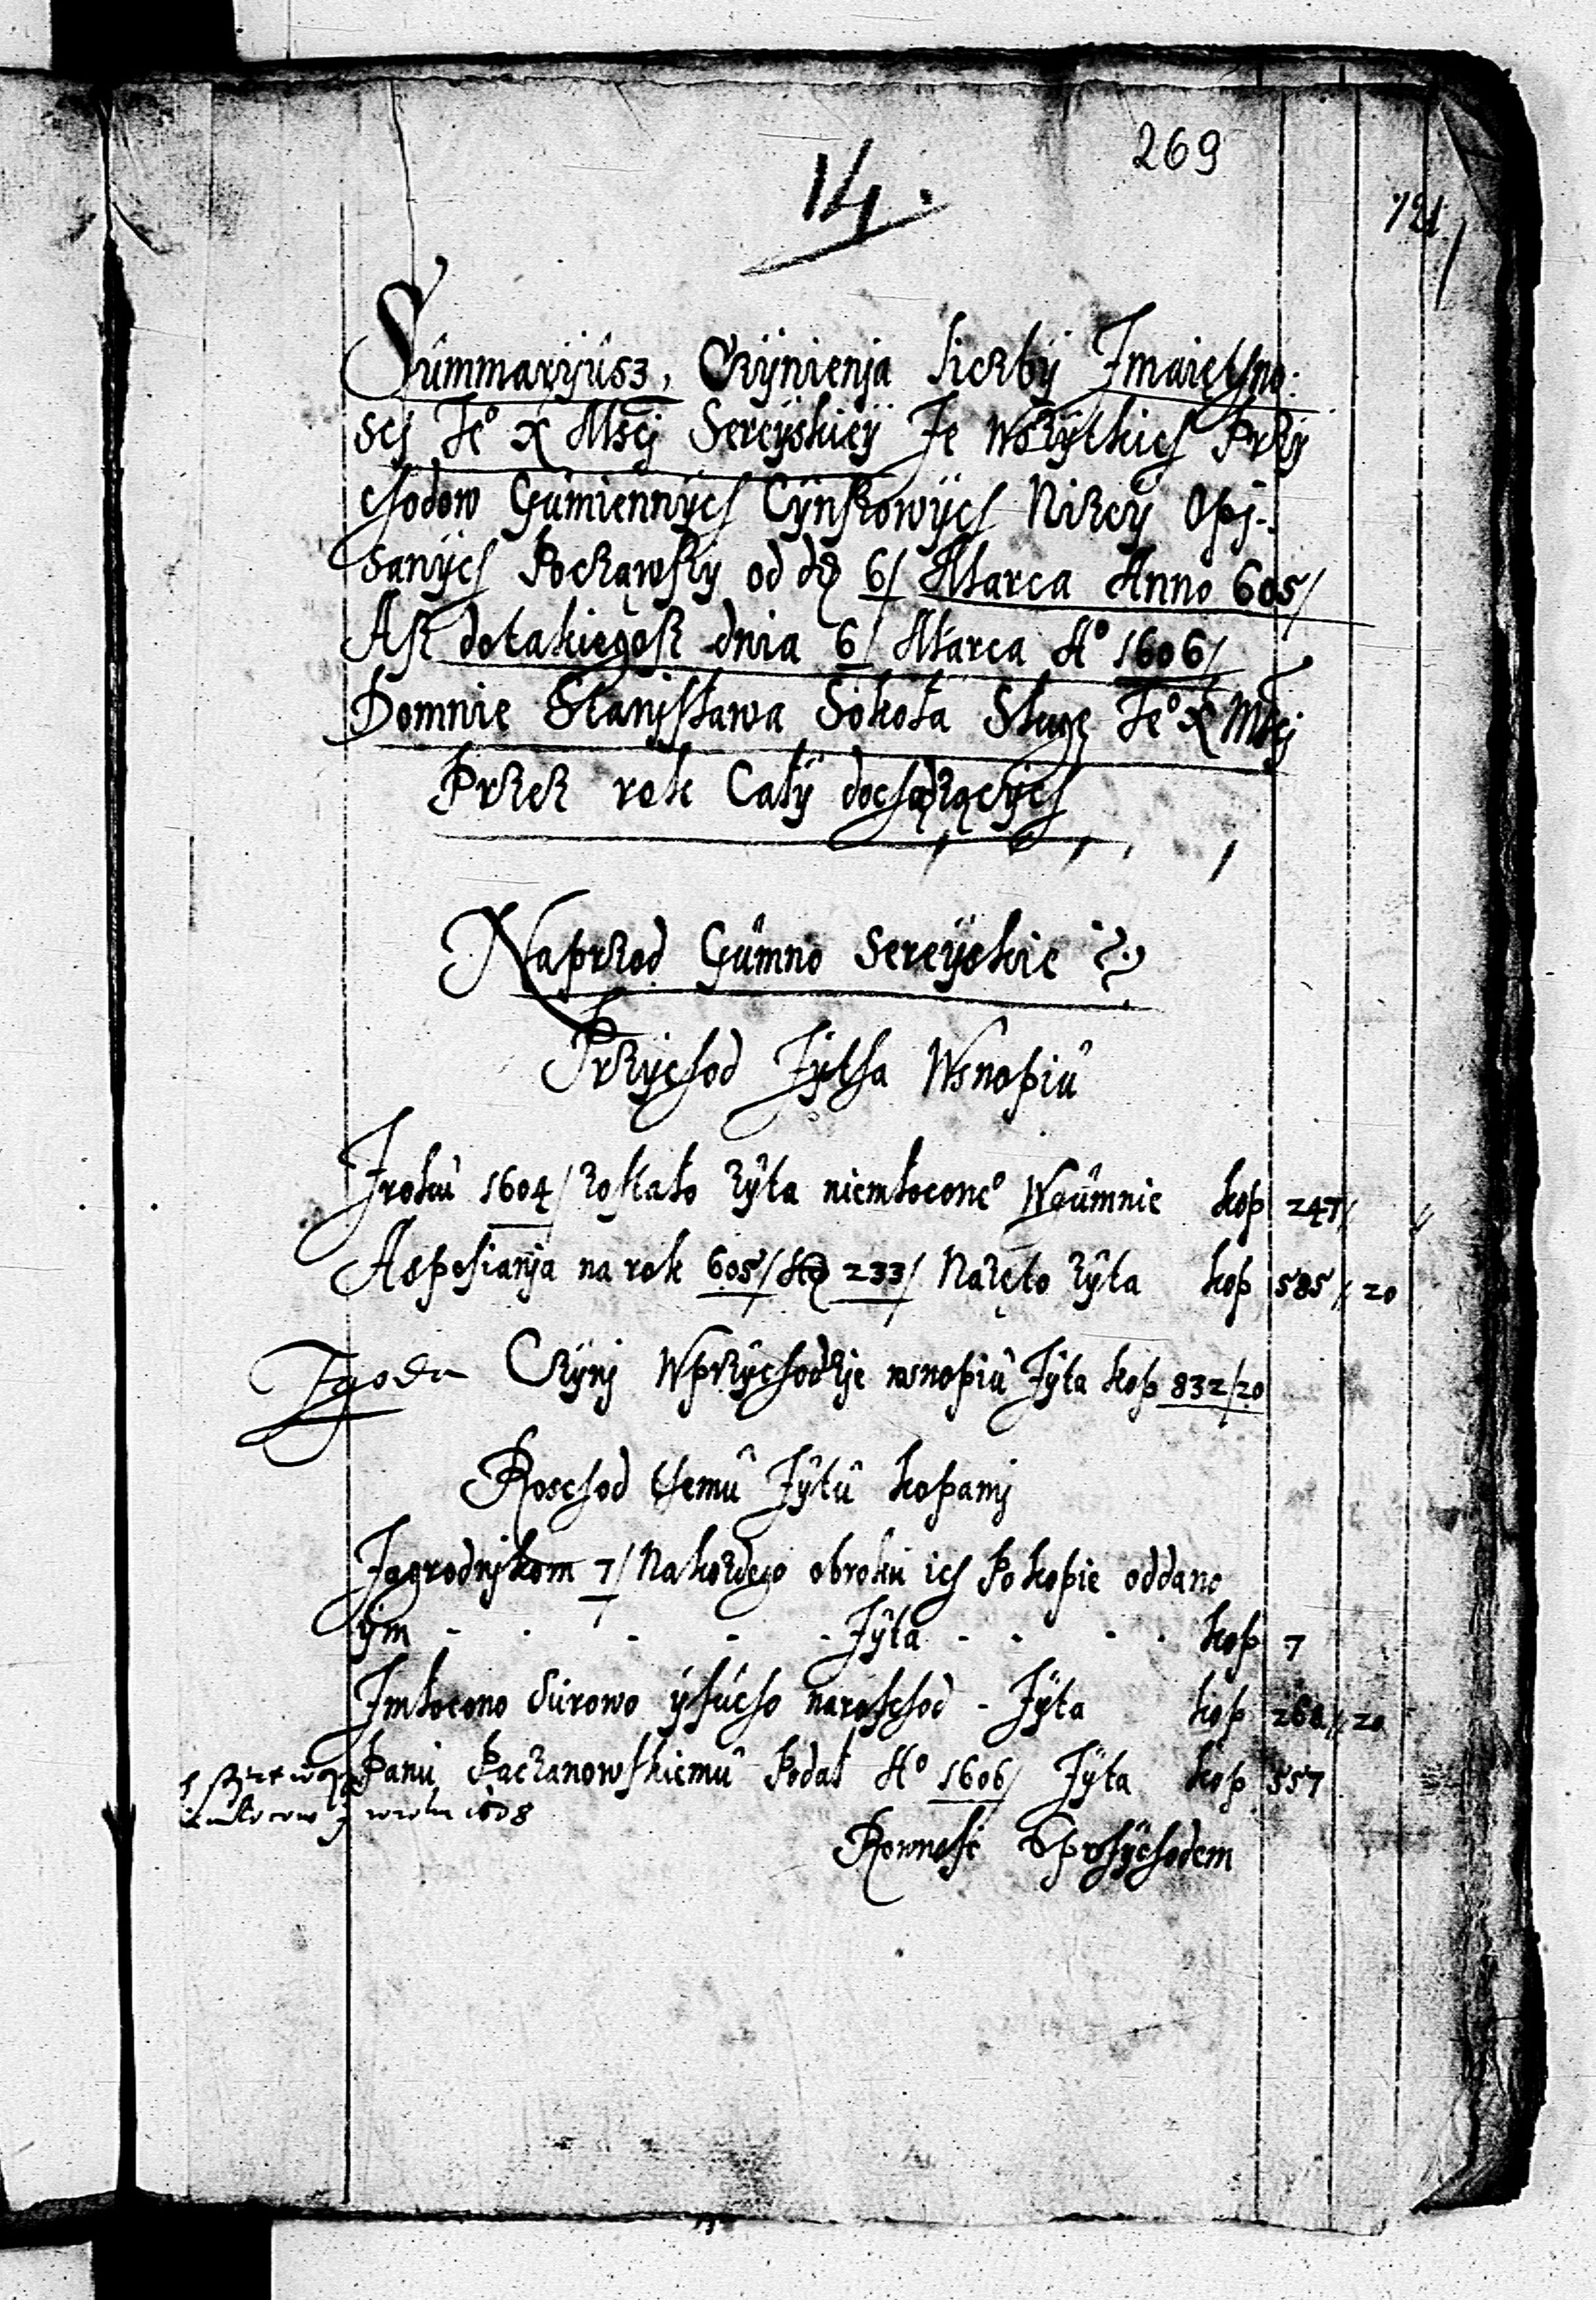 269
14.
721
Summaryusz, Czynienia liczby Zmaiętno:
sci Je° X Mści Sereyskiey Ze Wszytkich Przy
chodow Gumiennych Cynszowych Nizey Opi-
sanych Począwszy od d 6/ Marca Anno 605/
Asz dotakiegosz dnia 6/ Marca A° 1606/
Domnie Stanisława Sokoła Sługę Je° X Mści
Przez rok Cały dochądzących
Naprzod Gumno Sereyskie
Przychod Zytha Wsnopiu
Zroku 1604/ zostało zyta niemłocone° Wgumnie kop 247/
Asposiania na rok 605/ 233/ Nazęto zyta kop 585// 20
Zgoda Czyni Wprzychodzie wsnopiu Zyta kop 832/20
Roschod themu Zytu kopami
Zagrodnikom 7/ Nakozdego obroku ich Pokopie oddano
ym - - - - - Zyta - - - - kop 7
Zmłocono Surowo ysucho naroschod - Zyta kop 268// 20
Panu Paczanowskiemu Podał A° 1606/ Zyta kop 557
wroku 1608
Rownosc Sprzychodem